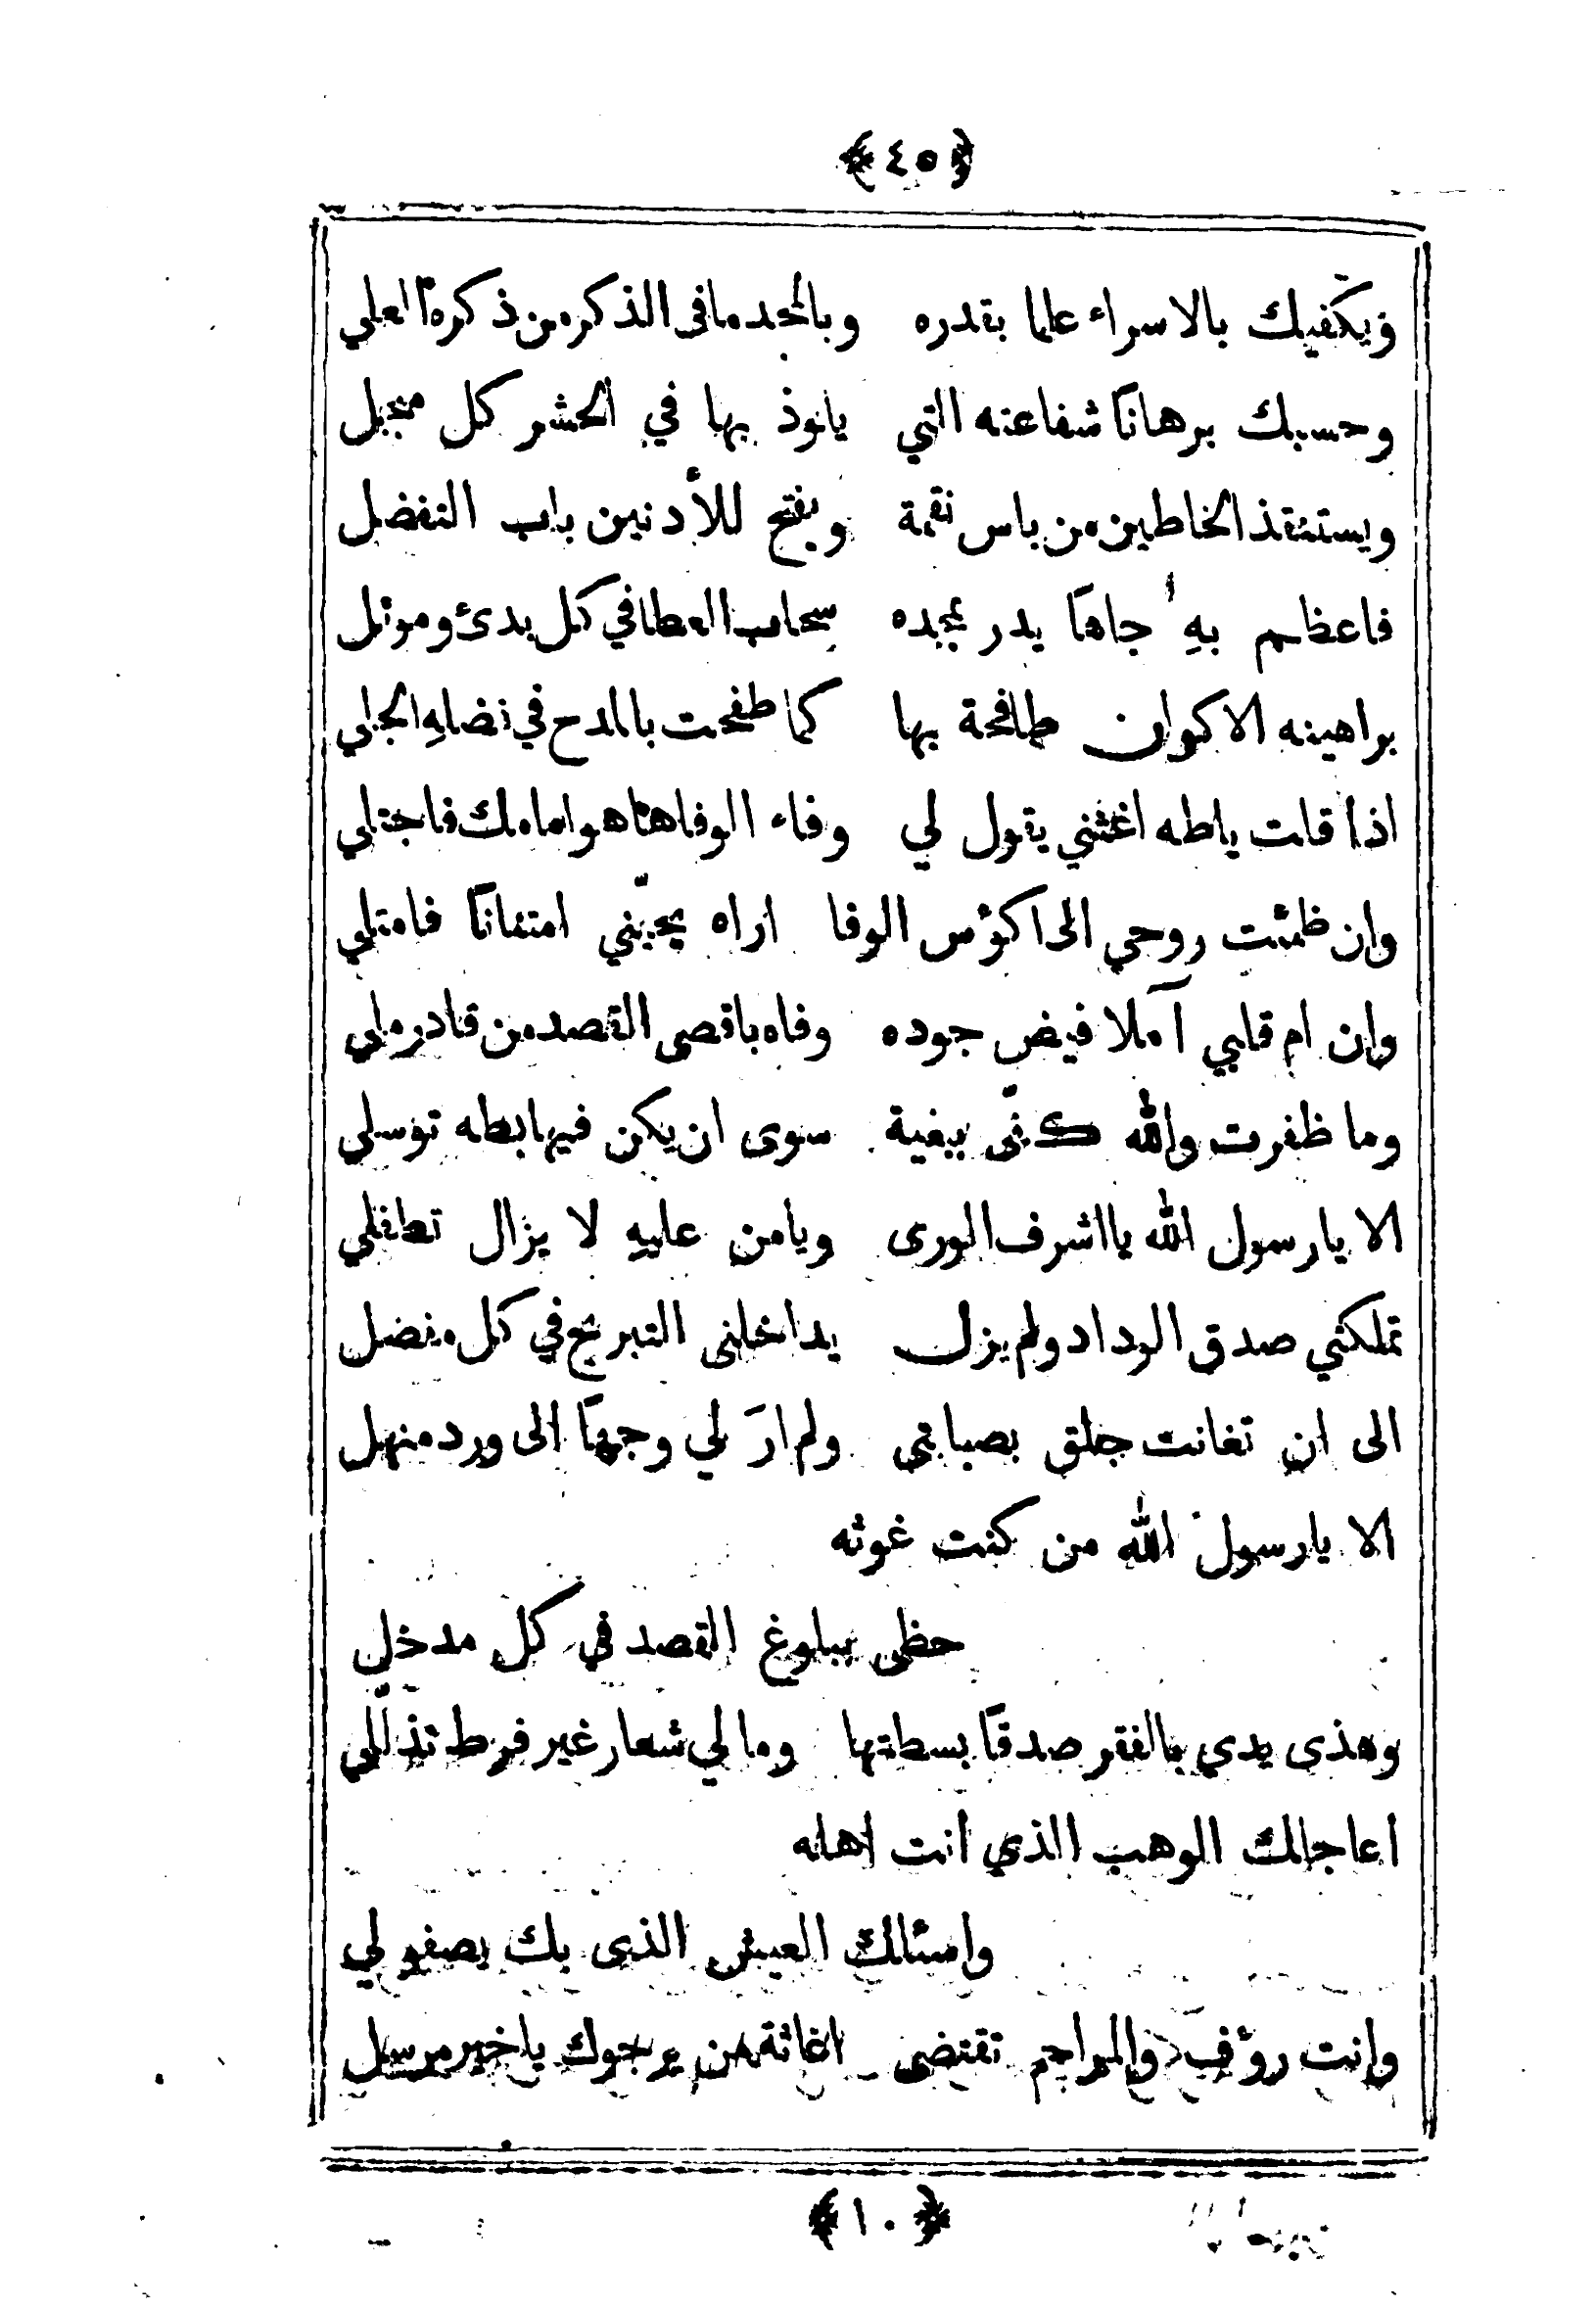 ﴿٤٥﴾
ويكفيك بالاسراء علما بقدره وبالمجد ما فى الذكر من ذكره العلي
وحسبك برهانًا شفاعته التي يلوذ بها في الحشر كل مبجل
ويستنقذ الخاطين من باس نقمة ويفتح للأدنين باب التفضل
فاعظم بهِ جاهًا يدر بمجده سحاب العطا في كل بدئ وموئل
براهينه الاكوان طافحة بها كما طفحت بالمدح في فضلهِ الجلي
اذا قلت ياطه اغثني يقول لي وفاء الوفا ها هو امامك فاجتلي
وان ظمئت روحي الى اكؤس الوفا اراه يحيّني امتنانًا فامتلي
وان ام قلبي آملا فيض جوده وفاه باقصى القصد من قادر ملي
وما ظفرت والله كفّى ببغية سوى ان يكن فيها بطه توسلي
الا يارسول الله يا اشرف الورى ويامن عليهِ لا يزال تطفلي
تملكني صدق الوداد ولم يزل يداخلنى التبريح في كل مفصل
الى ان تغانت جلق بصبابتى ولم ارَ لي وجهًا الى ورد منهل
الا يارسول الله من كنت غوثه
حظى ببلوغ القصد في كل مدخل
وهذى يدي بالفقر صدقًا بسطتها وما لي شعار غير فرط تذللّي
أعاجلك الوهب الذي أنت أهله
واسئالك العيش الذى بك يصفو لي
وانت رؤف والمراحم تقتضى اغاثة من يرجوك ياخير مرسل
﴿١٠﴾